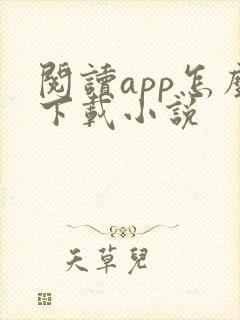 閱讀app怎麼
下載小說
天草兒